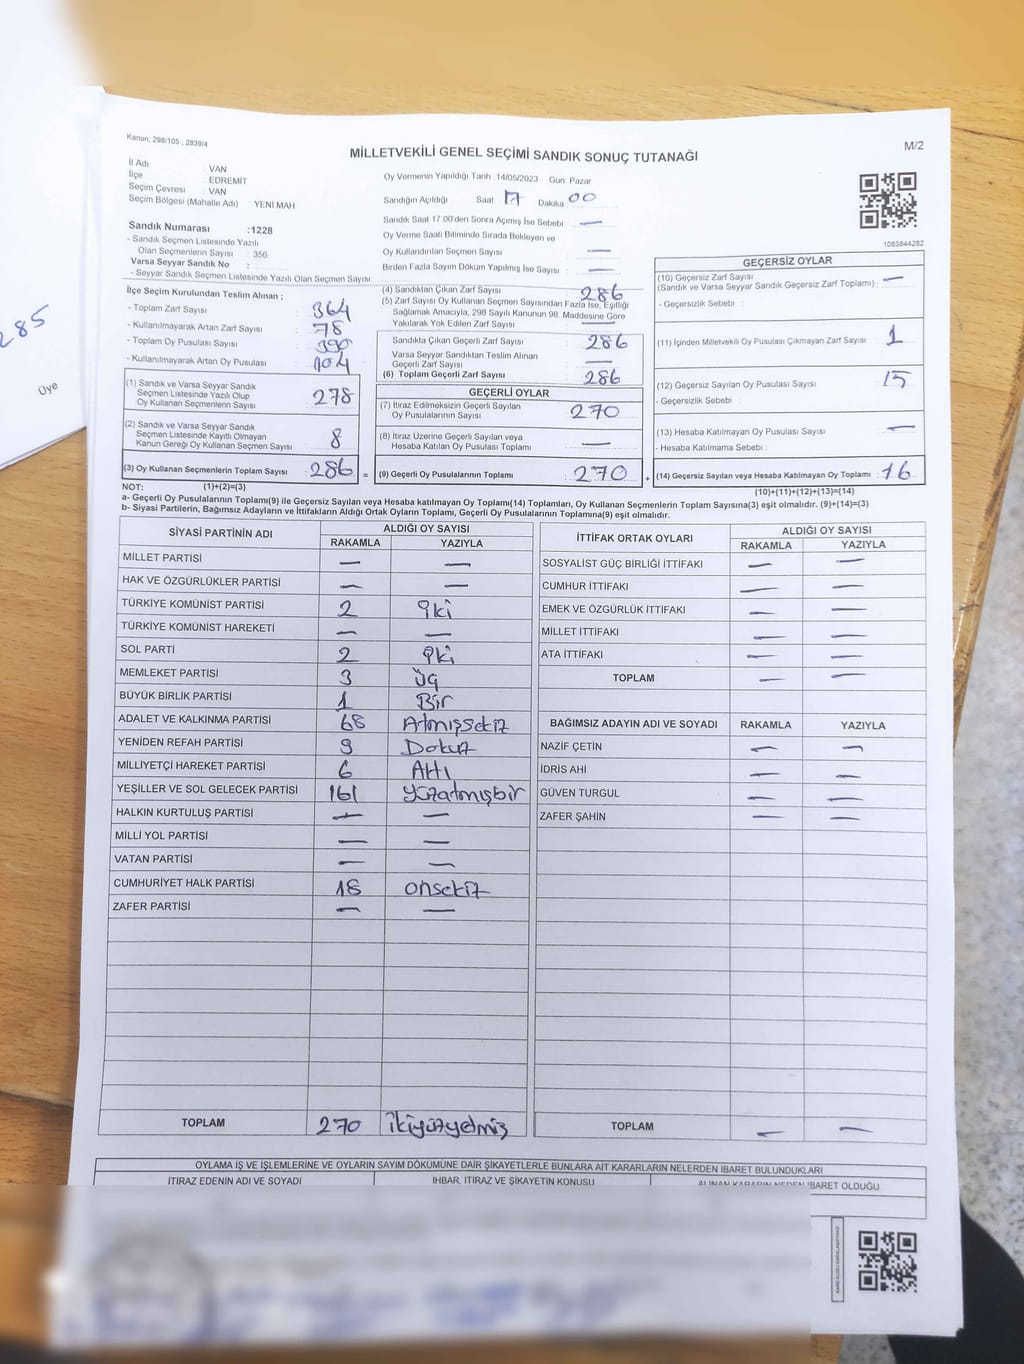 285
Üye
Kanun, 298/105 , 2839/4
M/2
MİLLETVEKİLİ GENEL SEÇİMİ SANDIK SONUÇ TUTANAĞI
İl Adı : VAN
İlçe : EDREMİT
Seçim Çevresi : VAN
Seçim Bölgesi (Mahalle Adı) YENİ MAH
Oy Vermenin Yapıldığı Tarih :14/05/2023 Gün Pazar
Sandığın Açıldığı Saat 17 Dakika 00
Sandık Numarası :1228
- Sandık Seçmen Listesinde Yazılı
Olan Seçmenlerin Sayısı : 356
Varsa Seyyar Sandık No :
- Seyyar Sandık Seçmen Listesinde Yazılı Olan Seçmen Sayısı
Sandık Saat 17:00'den Sonra Açımış İse Sebebi —
Oy Verme Saati Bitiminde Sırada Bekleyen ve
Oy Kullandırılan Seçmen Sayısı —
Birden Fazla Sayım Döküm Yapılmış İse Sayısı —
1083844282
İlçe Seçim Kurulundan Teslim Alınan ;
- Toplam Zarf Sayısı : 364
- Kullanılmayarak Artan Zarf Sayısı : 78
- Toplam Oy Pusulası Sayısı : 390
- Kullanılmayarak Artan Oy Pusulası : 104
(1) Sandık ve Varsa Seyyar Sandık
Seçmen Listesinde Yazılı Olup
Oy Kullanan Seçmenlerin Sayısı : 278
(2) Sandık ve Varsa Seyyar Sandık
Seçmen Listesinde Kayıtlı Olmayan
Kanun Gereği Oy Kullanan Seçmen Sayısı : 8
(3) Oy Kullanan Seçmenlerin Toplam Sayısı : 286 =
(4) Sandıktan Çıkan Zarf Sayısı : 286
(5) Zarf Sayısı Oy Kullanan Seçmen Sayısından Fazla İse, Eşitliği
Sağlamak Amacıyla, 298 Sayılı Kanunun 98. Maddesine Göre
Yakılarak Yok Edilen Zarf Sayısı : —
Sandıkta Çıkan Geçerli Zarf Sayısı : 286
Varsa Seyyar Sandıktan Teslim Alınan
Geçerli Zarf Sayısı : —
(6) Toplam Geçerli Zarf Sayısı : 286
GEÇERLİ OYLAR
(7) İtiraz Edilmeksizin Geçerli Sayılan
Oy Pusulalarının Sayısı : 270
(8) İtiraz Üzerine Geçerli Sayılan veya
Hesaba Katılan Oy Pusulası Toplamı : —
(9) Geçerli Oy Pusulalarının Toplamı : 270 +
GEÇERSİZ OYLAR
(10) Geçersiz Zarf Sayısı
(Sandık ve Varsa Seyyar Sandık Geçersiz Zarf Toplamı) : —
- Geçersizlik Sebebi :
(11) İçinden Milletvekili Oy Pusulası Çıkmayan Zarf Sayısı : 1
(12) Geçersiz Sayılan Oy Pusulası Sayısı : 15
- Geçersizlik Sebebi :
(13) Hesaba Katılmayan Oy Pusulası Sayısı : —
- Hesaba Katılmama Sebebi :
(14) Geçersiz Sayılan veya Hesaba Katılmayan Oy Toplamı : 16
NOT: (1)+(2)=(3)
(10)+(11)+(12)+(13)=(14)
a- Geçerli Oy Pusulalarının Toplamı(9) ile Geçersiz Sayılan veya Hesaba katılmayan Oy Toplamı(14) Toplamları, Oy Kullanan Seçmenlerin Toplam Sayısına(3) eşit olmalıdır. (9)+(14)=(3)
b- Siyasi Partilerin, Bağımsız Adayların ve İttifakların Aldığı Ortak Oyların Toplamı, Geçerli Oy Pusulalarının Toplamına(9) eşit olmalıdır.
SİYASİ PARTİNİN ADI ALDIĞI OY SAYISI
RAKAMLA YAZIYLA
MİLLET PARTİSİ — —
HAK VE ÖZGÜRLÜKLER PARTİSİ — —
TÜRKİYE KOMÜNİST PARTİSİ 2 iki
TÜRKİYE KOMÜNİST HAREKETİ — —
SOL PARTİ 2 iki
MEMLEKET PARTİSİ 3 Üç
BÜYÜK BİRLİK PARTİSİ 1 Bir
ADALET VE KALKINMA PARTİSİ 68 Atmışsekiz
YENİDEN REFAH PARTİSİ 9 Dokuz
MİLLİYETÇİ HAREKET PARTİSİ 6 Altı
YEŞİLLER VE SOL GELECEK PARTİSİ 161 yüzatmışbir
HALKIN KURTULUŞ PARTİSİ — —
MİLLİ YOL PARTİSİ — —
VATAN PARTİSİ — —
CUMHURİYET HALK PARTİSİ 18 onsekiz
ZAFER PARTİSİ — —
TOPLAM 270 ikiyüzyetmiş
İTTİFAK ORTAK OYLARI ALDIĞI OY SAYISI
RAKAMLA YAZIYLA
SOSYALİST GÜÇ BİRLİĞİ İTTİFAKI — —
CUMHUR İTTİFAKI — —
EMEK VE ÖZGÜRLÜK İTTİFAKI — —
MİLLET İTTİFAKI — —
ATA İTTİFAKI — —
TOPLAM — —
BAĞIMSIZ ADAYIN ADI VE SOYADI RAKAMLA YAZIYLA
NAZİF ÇETİN — —
İDRİS AHİ — —
GÜVEN TURGUL — —
ZAFER ŞAHİN — —
TOPLAM — —
OYLAMA İŞ VE İŞLEMLERİNE VE OYLARIN SAYIM DÖKÜMÜNE DAİR ŞİKAYETLERLE BUNLARA AİT KARARLARIN NELERDEN İBARET BULUNDUKLARI
İTİRAZ EDENİN ADI VE SOYADI İHBAR, İTİRAZ VE ŞİKAYETİN KONUSU ALINAN KARARIN NEDEN İBARET OLDUĞU